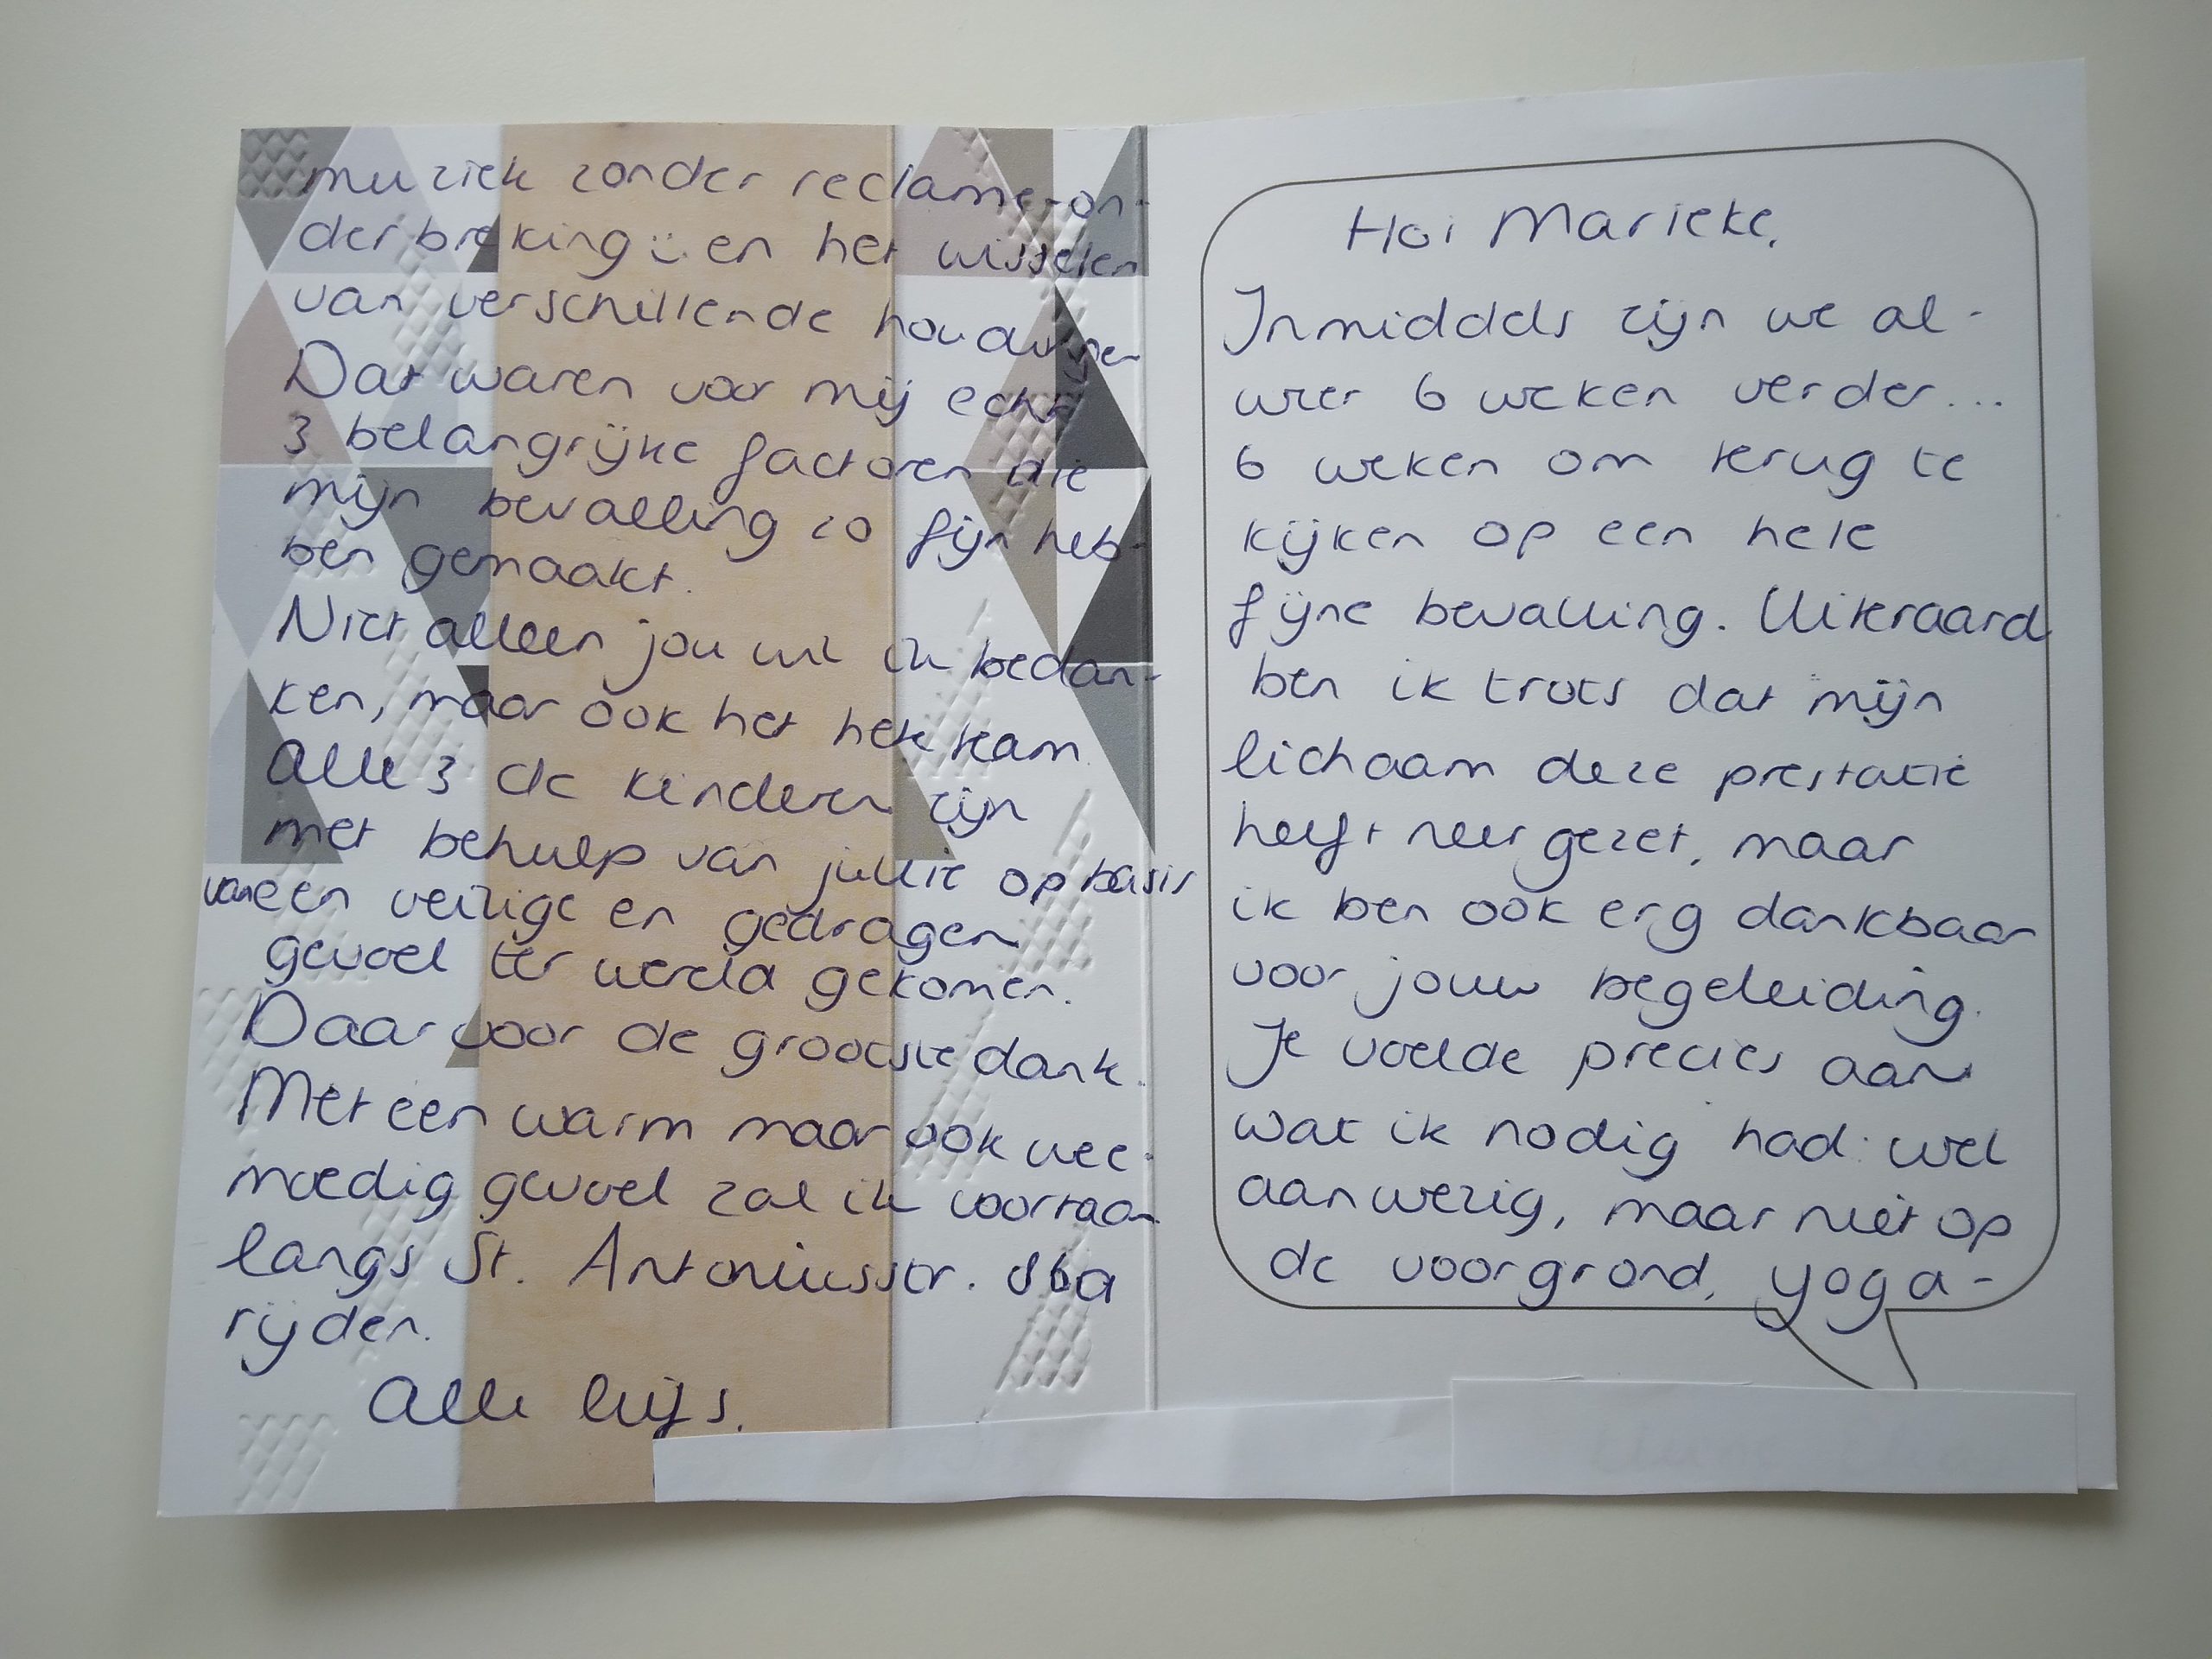 Hoi Marieke,
Inmiddels zijn we al-
weer 6 weken verder...
6 weken om terug te
kijken op een hele
fijne bevalling. Uiteraard
ben ik trots dat mijn
lichaam deze prestatie
heeft neergezet, maar
ik ben ook erg dankbaar
voor jouw begeleiding.
Je voelde precies aan
wat ik nodig had: wel
aanwezig, maar niet op
de voorgrond, yoga-
muziek zonder reclame-on-
derbreking :) en het wisselen
van verschillende houdingen
Dat waren voor mij echt
3 belangrijke factoren die
mijn bevalling zo fijn heb-
ben gemaakt.
Niet alleen jou wil ik bedan-
ken, maar ook het hele team.
Alle 3 de kinderen zijn
met behulp van jullie op basis
van een veilige en gedragen
gevoel ter wereld gekomen.
Daarvoor de grootste dank.
Met een warm maar ook wee-
moedig gevoel zal ik voortaan
langs St. Antoniusstr. 86a
rijden.
Alle liefs.